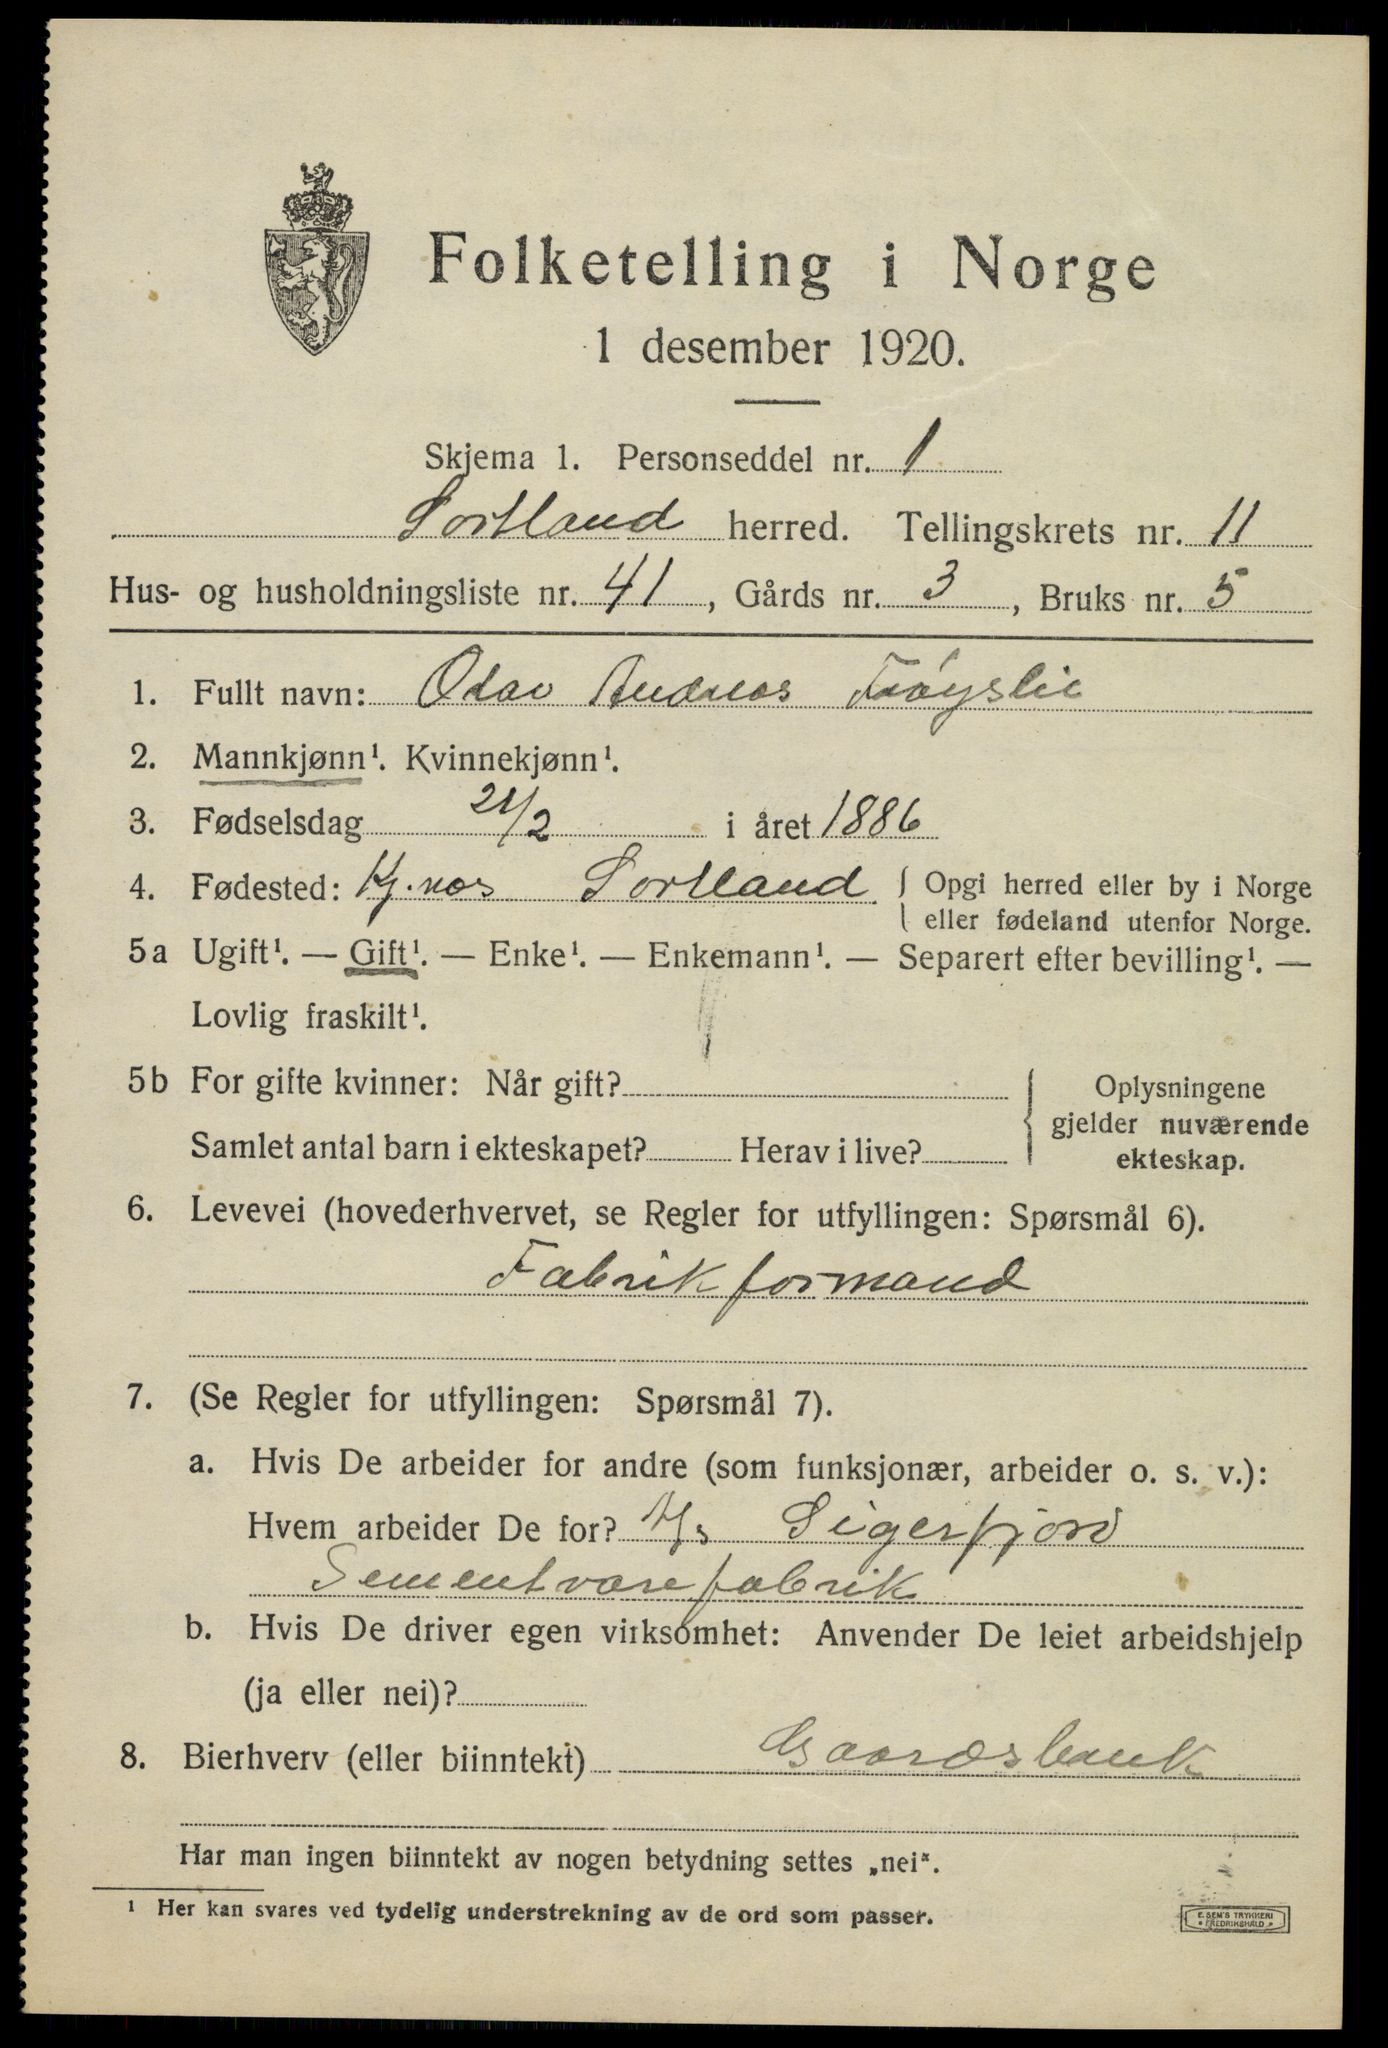 Folketelling i Norge
1 desember 1920.
Skjema 1. Personseddel nr. 1
Sortland herred. Tellingskrets nr. 11
Hus- og husholdningsliste nr. 41, Gårds nr. 3, Bruks nr. 5
1. Fullt navn: Olav Andreas Frøyslie
2. Mannkjønn¹. Kvinnekjønn¹.
3. Fødselsdag 21/2 i året 1886
4. Fødested: Sortland { Opgi herred eller by i Norge
eller fødeland utenfor Norge.
5a Ugift¹. — Gift¹. — Enke¹. — Enkemann¹. — Separert efter bevilling¹. —
Lovlig fraskilt¹.
5b For gifte kvinner: Når gift?
Samlet antal barn i ekteskapet? Herav i live?
Oplysningene
gjelder nuværende
ekteskap.
6. Levevei (hovederhvervet, se Regler for utfyllingen: Spørsmål 6).
Fabrikformand
7. (Se Regler for utfyllingen: Spørsmål 7).
a. Hvis De arbeider for andre (som funksjonær, arbeider o. s. v.):
Hvem arbeider De for? A/s Sigerfjord
Sementvarefabrik
b. Hvis De driver egen virksomhet: Anvender De leiet arbeidshjelp
(ja eller nei)?
8. Bierhverv (eller biinntekt) Gaardsbruk
Har man ingen biinntekt av nogen betydning settes „nei".
¹ Her kan svares ved tydelig understrekning av de ord som passer.
E. SEM'S TRYKKERI
FREDRIKSHALD